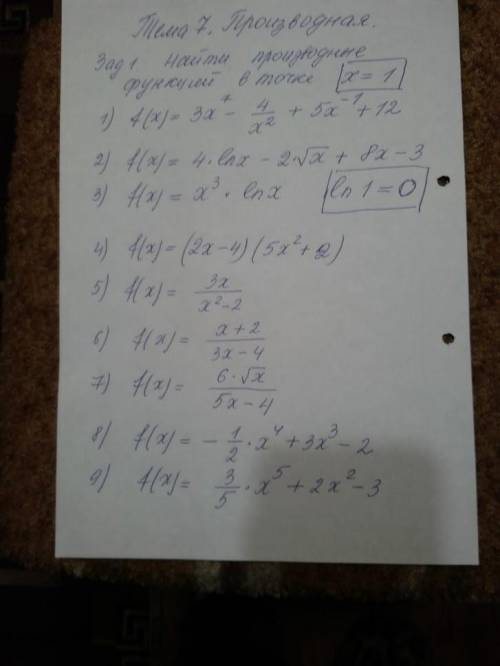 Тема 7. Производная.
Зад 1 Найти производные
функций в точке x = 1
1) f(x) = 3x⁷ - 4/x² + 5x⁻¹ + 12
2) f(x) = 4·lnx - 2·√x + 8x - 3
3) f(x) = x³ · lnx ln 1 = 0
4) f(x) = (2x-4)(5x²+2)
5) f(x) = 3x/(x²-2)
6) f(x) = (x+2)/(3x-4)
7) f(x) = (6·√x)/(5x-4)
8) f(x) = -1/2·x⁴ + 3x³ - 2
9) f(x) = 3/5·x⁵ + 2x² - 3